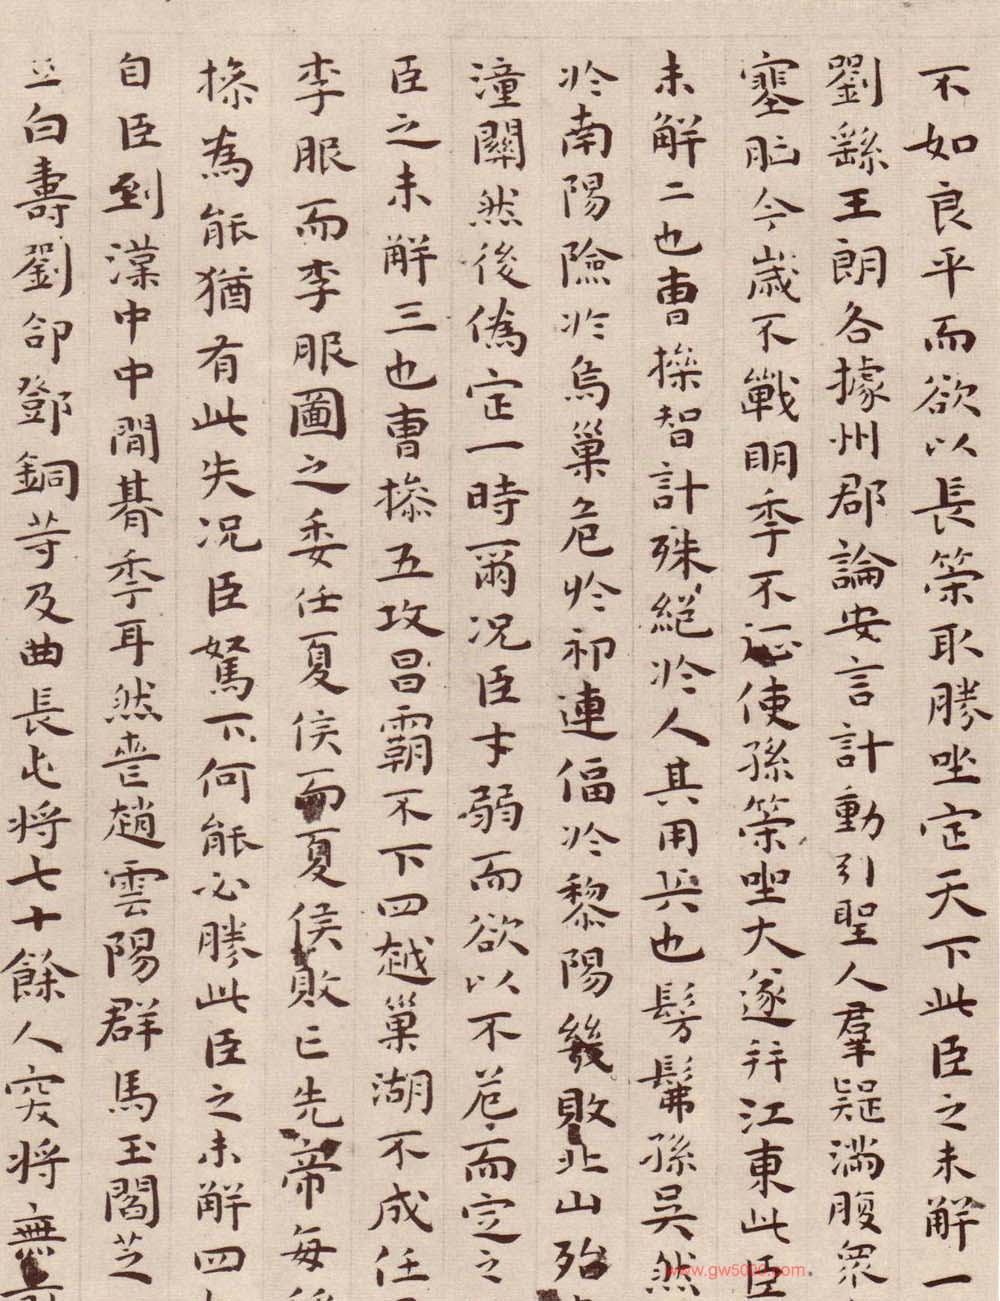 不如良平而欲以長策取勝坐定天下此臣之未解一
劉繇王朗各據州郡論安言計動引聖人羣疑滿腹眾
塞胸今歲不戰明年不征使孫策坐大遂并江東此臣
未解二也曹操智計殊絕於人其用兵也髣髴孫吳然
於南陽險於烏巢危於祁連偪於黎陽幾敗北山殆
潼關然後偽定一時爾況臣才弱而欲以不危而定之
臣之未解三也曹操五攻昌霸不下四越巢湖不成任
李服而李服圖之委任夏侯而夏侯敗亡先帝每
操為能猶有此失況臣駑下何能必勝此臣之未解四
自臣到漢中中間朞年耳然喪趙雲陽群馬玉閻芝
立白壽劉郃鄧銅等及曲長屯將七十餘人突將無
www.gw5000.com